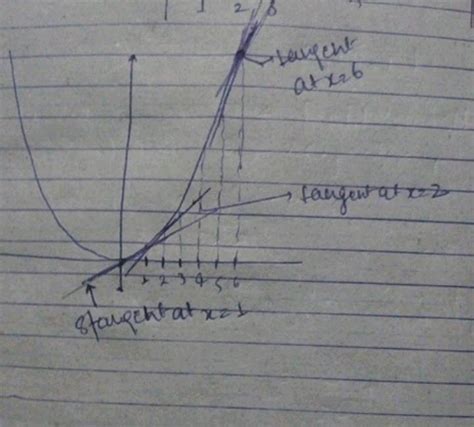 1 2 3
tangent
at x=6
tangent at x=2
1 2 3 4 5 6
tangent at x=1